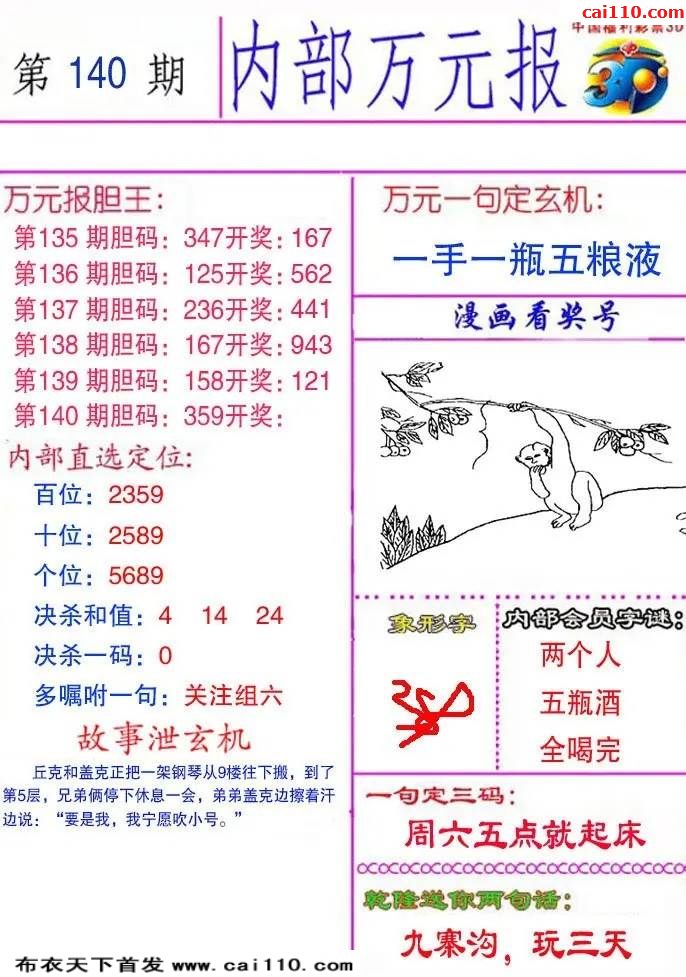 cai110.com
中国福利彩票3D
第 140 期
内部万元报
3D
万元报胆王:
第135 期胆码: 347开奖: 167
第136 期胆码: 125开奖: 562
第137 期胆码: 236开奖: 441
第138 期胆码: 167开奖: 943
第139 期胆码: 158开奖: 121
第140 期胆码: 359开奖:
内部直选定位:
百位: 2359
十位: 2589
个位: 5689
决杀和值: 4 14 24
决杀一码: 0
多嘱咐一句: 关注组六
故事泄玄机
丘克和盖克正把一架钢琴从9楼往下搬，到了
第5层，兄弟俩停下休息一会，弟弟盖克边擦着汗
边说: “要是我，我宁愿吹小号。”
万元一句定玄机:
一手一瓶五粮液
漫画看奖号
象形字
内部会员字谜:
两个人
五瓶酒
全喝完
一句定三码:
周六五点就起床
乾隆送你两句话:
九寨沟，玩三天
布衣天下首发 www.cai110.com